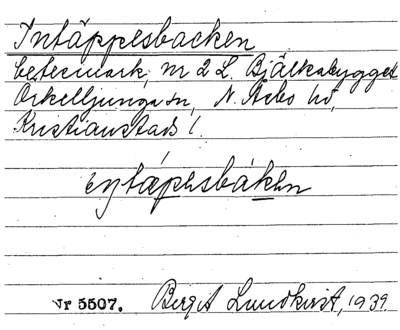 Intäppesbacken
betesmark, nr 2 L. Bjälkabygget
Örkelljunga sn, N. Åsbo hd,
Kristianstads l.
eŋtápesbàken
Nr 5507. Birgit Lundkvist, 1939.